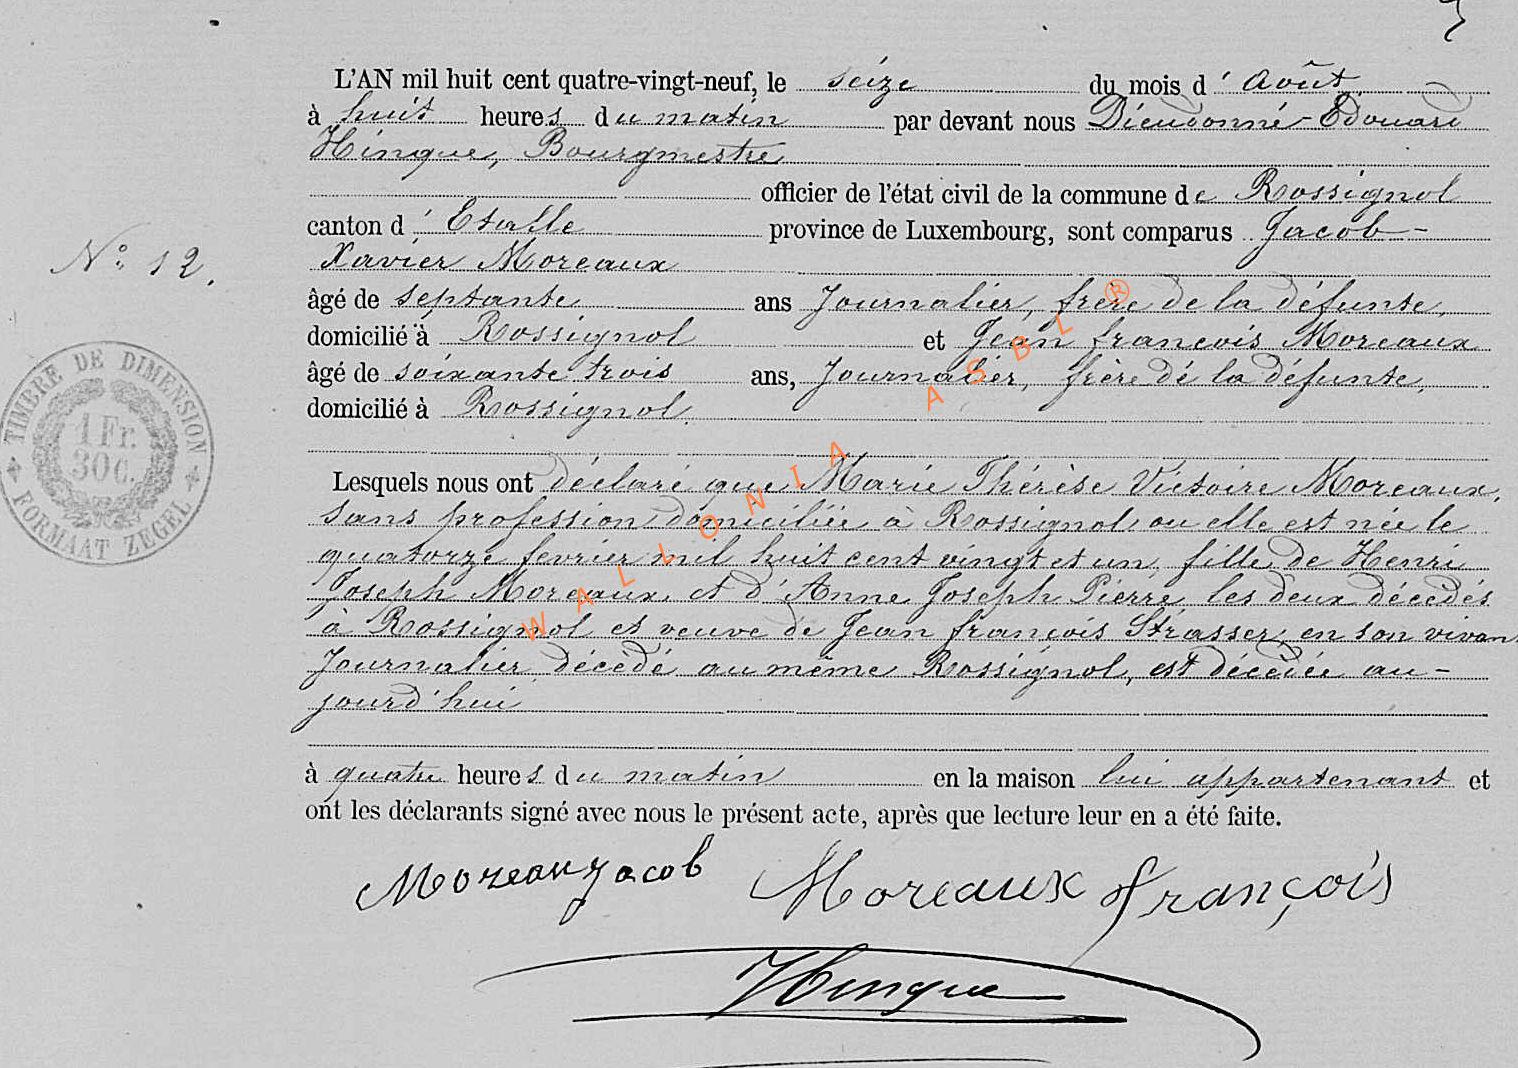 L'AN mil huit cent quatre-vingt-neuf, le seize du mois d'Août
à huit heures du matin par devant nous Dieudonné-Edouard
Hinque, Bourgmestre
officier de l'état civil de la commune de Rossignol
canton d'Etalle province de Luxembourg, sont comparus Jacob-
Xavier Moreaux
N° 12.
âgé de septante ans Journalier, frère de la défunte,
domicilié à Rossignol et Jean françois Moreaux
âgé de soixante trois ans, Journalier, frère de la défunte,
domicilié à Rossignol.
TIMBRE DE DIMENSION
1 Fr.
30 C.
FORMAAT ZEGEL
Lesquels nous ont déclaré que Marie Thérèse Victoire Moreaux,
sans profession domiciliée à Rossignol ou elle est née le
quatorze fevrier mil huit cent vingt et un, fille de Henri
Joseph Moreaux et d'Anne Joseph Pierre, les deux décedés
à Rossignol et veuve de Jean françois Strasser, en son vivant
Journalier décedé au même Rossignol, est décedée au-
jourd'hui
à quatre heures du matin en la maison lui appartenant et
ont les déclarants signé avec nous le présent acte, après que lecture leur en a été faite.
Moreaux jacob Moreaux françois
Hinque
WALLONIA ASBL ®